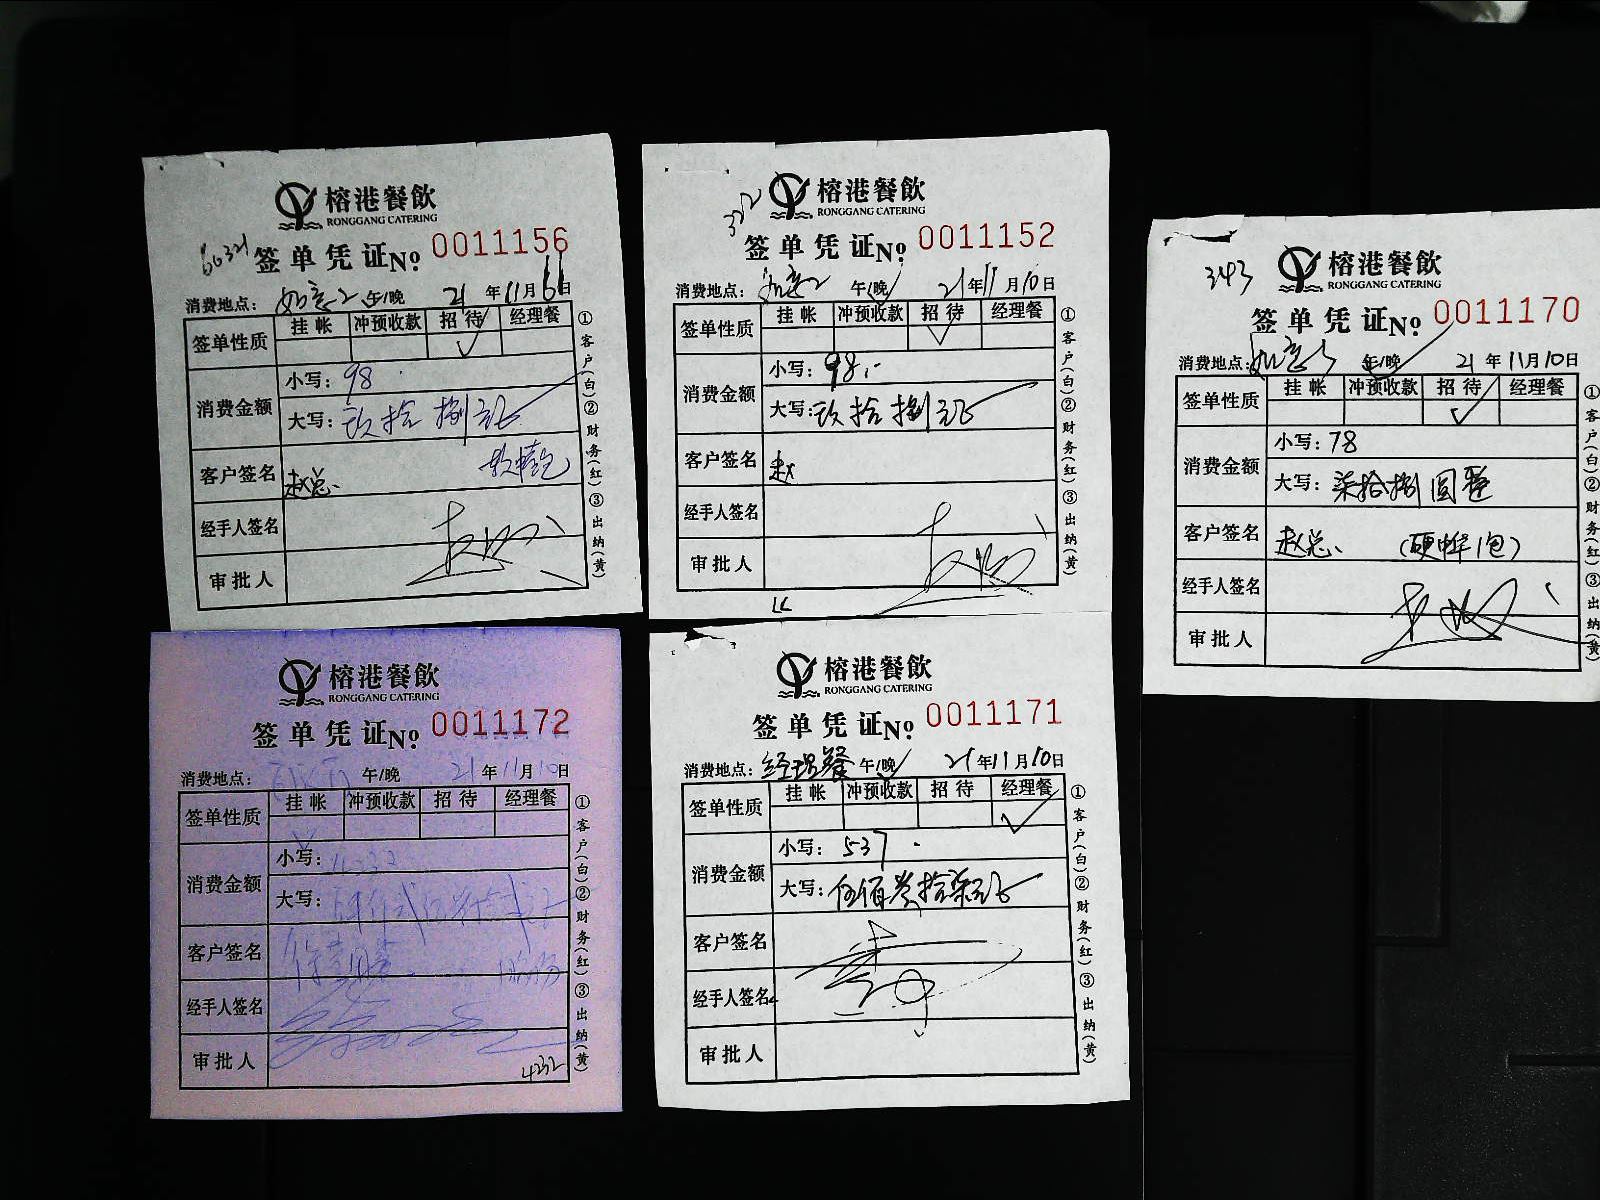 榕港餐飲
RONGGANG CATERING
签单凭证No. 0011156
消费地点：如意2 午/晚 21年11月 日
签单性质 挂帐 冲预收款 招待 经理餐
消费金额 小写：98
大写：玖拾捌元正
客户签名 赵总
经手人签名
审批人
①客户(白)②财务(红)③出纳(黄)
322
榕港餐飲
RONGGANG CATERING
签单凭证No. 0011152
消费地点：如意2 午/晚 21年11月10日
签单性质 挂帐 冲预收款 招待 经理餐
消费金额 小写：98.-
大写：玖拾捌元正
客户签名 赵
经手人签名
审批人
①客户(白)②财务(红)③出纳(黄)
343
榕港餐飲
RONGGANG CATERING
签单凭证No. 0011170
消费地点：如意 午/晚 21年11月10日
签单性质 挂帐 冲预收款 招待 经理餐
消费金额 小写：78
大写：柒拾捌圆整
客户签名 赵总 (硬中华1包)
经手人签名
审批人
①客户(白)②财务(红)③出纳(黄)
榕港餐飲
RONGGANG CATERING
签单凭证No. 0011172
消费地点： 午/晚 21年11月10日
签单性质 挂帐 冲预收款 招待 经理餐
消费金额 小写：
大写：
客户签名
经手人签名
审批人
4232
①客户(白)②财务(红)③出纳(黄)
榕港餐飲
RONGGANG CATERING
签单凭证No. 0011171
消费地点：经理餐 午/晚 21年11月10日
签单性质 挂帐 冲预收款 招待 经理餐
消费金额 小写：537.
大写：伍佰叁拾柒元正
客户签名
经手人签名
审批人
①客户(白)②财务(红)③出纳(黄)